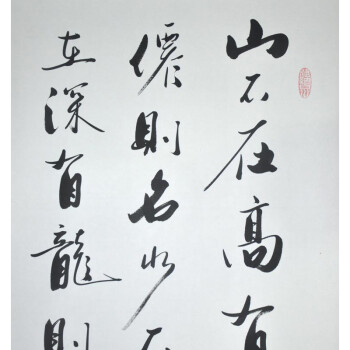 山不在高有
僊則名水不
在深有龍則